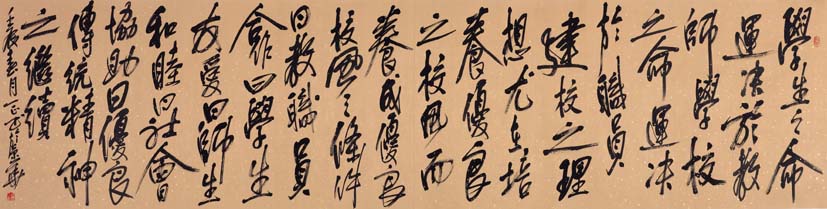 學生之命
運決於教
師學校
之命運決
於職員
建校之理
想尤在培
養優良
之校風而
養成優良
校風之條件
曰教職員
合作曰學生
友愛曰師生
和睦曰社會
協助曰優良
傳統精神
之繼續
壬辰春月